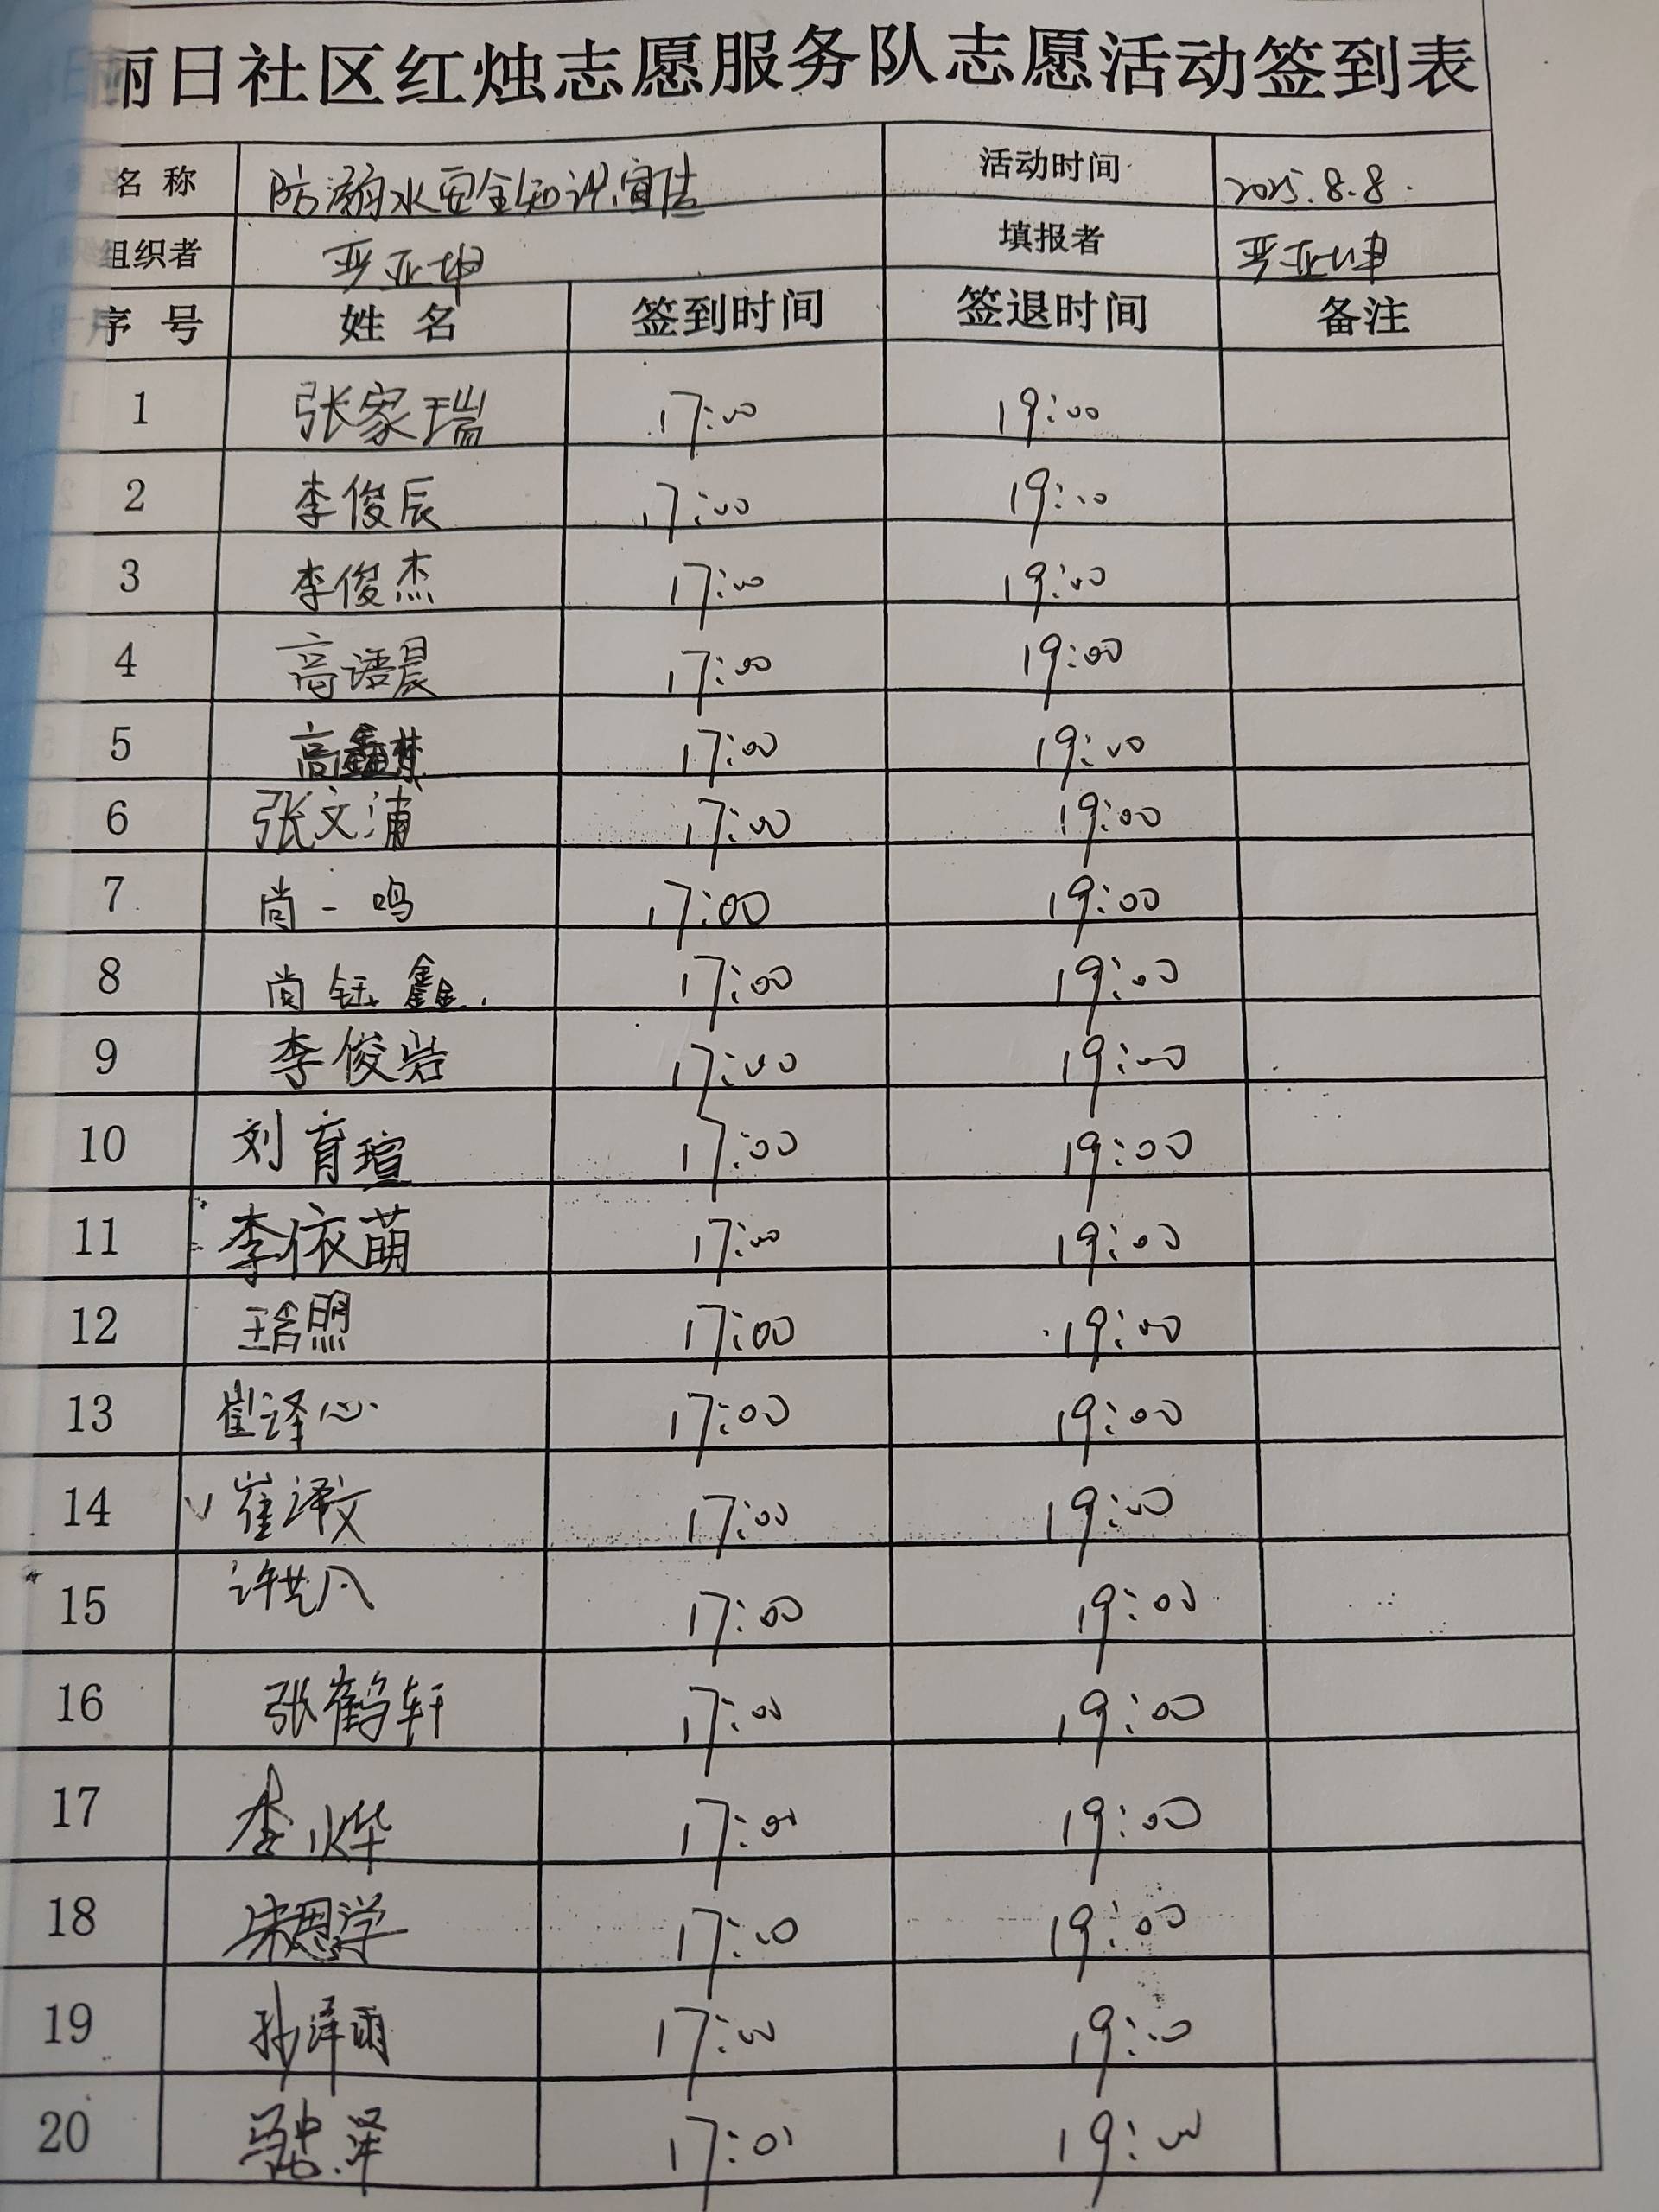 丽日社区红烛志愿服务队志愿活动签到表
名称 防溺水安全知识宣传 活动时间 2025.8.8.
组织者 亚坤 填报者 亚坤
序号 姓名 签到时间 签退时间 备注
1 张家瑞 17:00 19:00
2 李俊辰 17:00 19:00
3 李俊杰 17:00 19:00
4 高语晨 17:00 19:00
5 高鑫梦 17:00 19:00
6 张文浦 17:00 19:00
7 尚一鸣 17:00 19:00
8 尚钰鑫 17:00 19:00
9 李俊岩 17:00 19:00
10 刘育瑄 17:00 19:00
11 李依萌 17:00 19:00
12 王 17:00 19:00
13 崔译心 17:00 19:00
14 崔译文 17:00 19:00
15 许 凡 17:00 19:00
16 张鹤轩 17:00 19:00
17 李烨 17:00 19:00
18 宋恩学 17:00 19:00
19 孙泽雨 17:00 19:00
20 泽 17:00 19:00